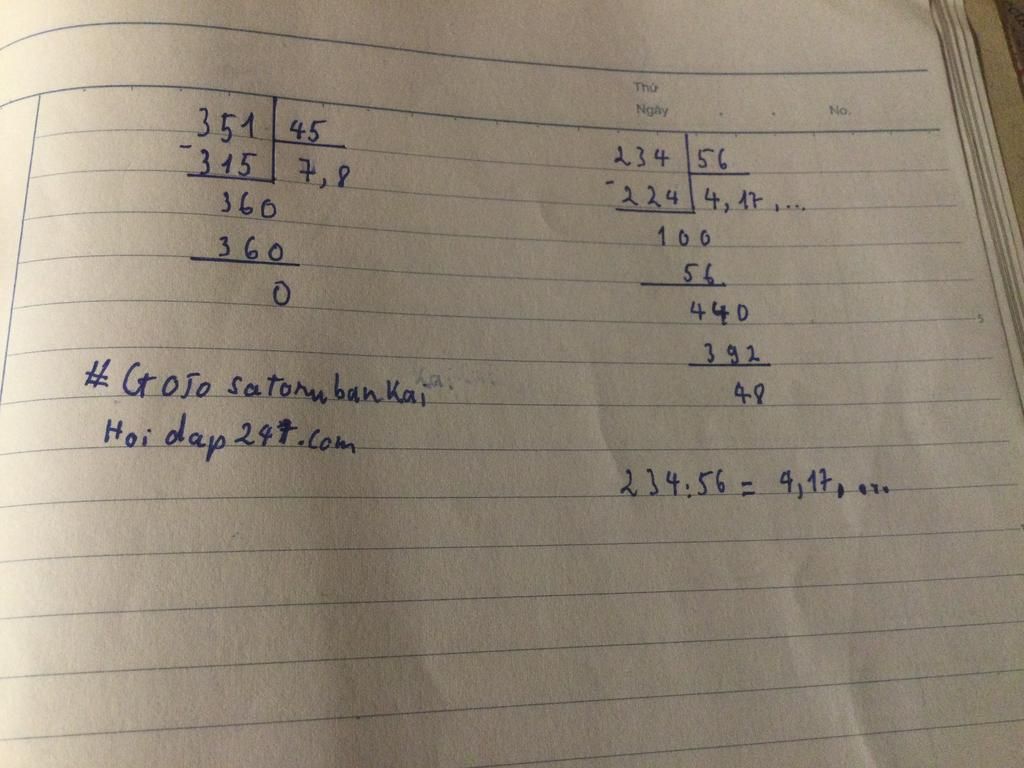 351 45
-315 7,8
360
360
0
# GOJO satoru bankai
Hoi dap 247.com
Thứ
Ngày . . No.
234 56
-224 4,17,...
100
56
440
392
48
234:56 = 4,17,...
5